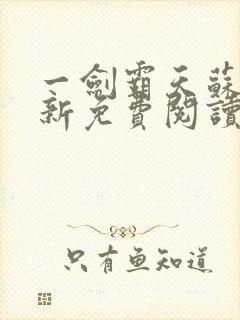 一劍霸天蘇
新免費閱讀
只有魚知道